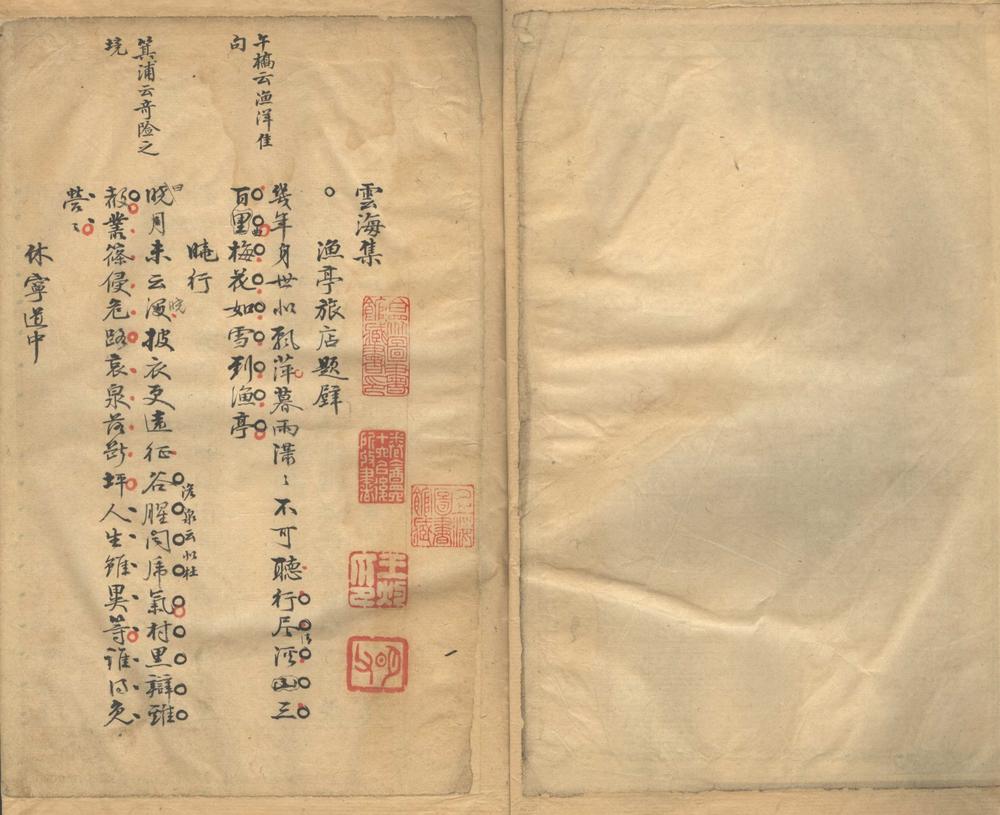 雲海集
漁亭旅店題壁
幾年身世似飄萍暮雨瀟〻不可聽行尽河山三
百里梅花如雪到漁亭
曉行
曉月未云沒披衣更遠征谷腥闻虎氣村黑辯雞
聲叢篠侵危路哀泉落斷坪人生雖異等誰得免
營〻
休寧道中
午橋云漁洋佳
句
箕浦云奇險之
境
滄泉云似杜